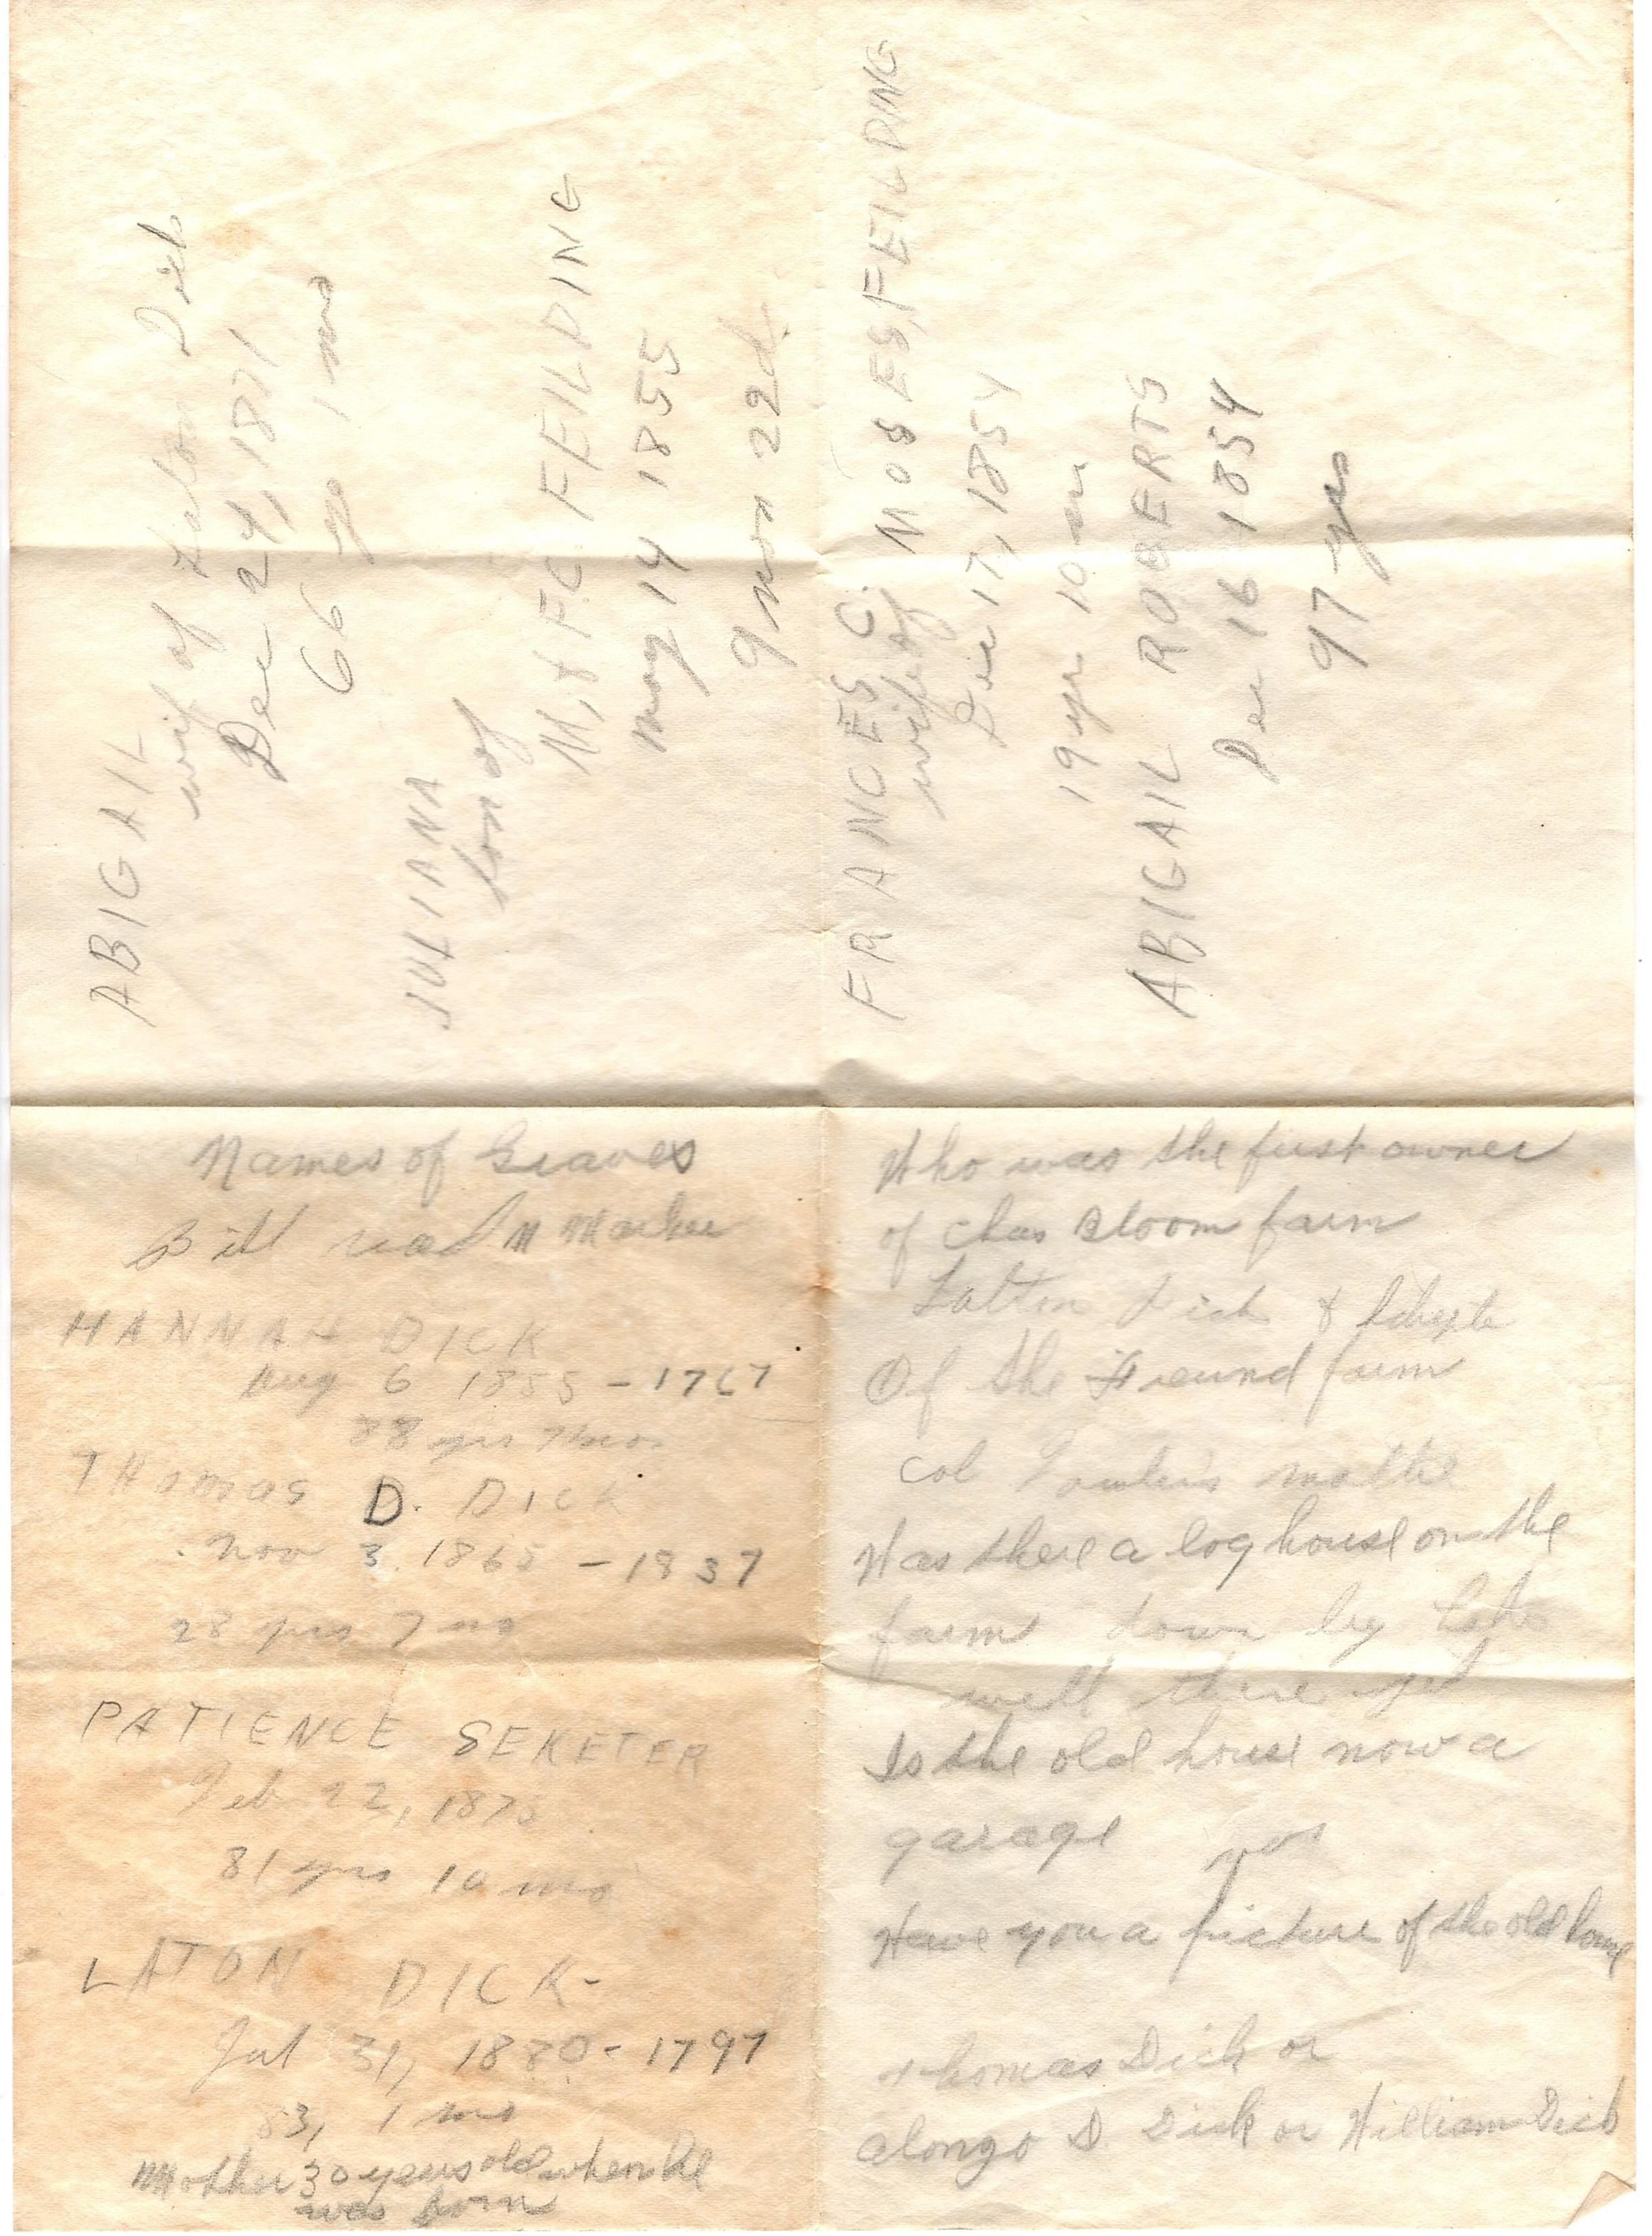 ABIGAIL
wif of Laton Dick
Dec 24, 1871
66 yr 1 mo
JULIANA
son of
M. & F C FEILDING
may 14 1855
9 mon 22d.
FRANCES C.
wife of MOSES FEILDING
Dec 17, 1854
19 yr 10 m
ABIGAIL ROBERTS
Dec 16 1854
97 yrs
Names of Graves
Bill read M
HANNAH DICK
Aug 6 1855 - 1767
88 yrs 7 mos
THOMAS D. DICK
Nov 3. 1865 - 1837
28 yrs 7 mo
PATIENCE SEKETER
Feb 22, 1875
81 yrs 10 mo
LATON DICK-
Jul 31, 1880 - 1797
83, 1 mo
Mother 30 years old when he
was born
Who was the first owner
of Chas Bloom farm
Latten Dick &
Of the Freund farm
Col
Was there a log house on the
farm down by
well there yet
Is the old house now a
garage yes
Have you a picture of the old home
Thomas Dick or
Alongo D. Dick or William Dick